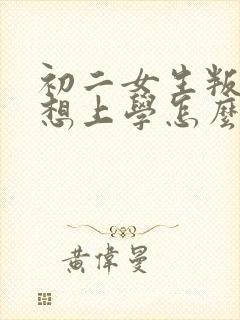 初二女生叛
想上學怎麼
黃偉曼